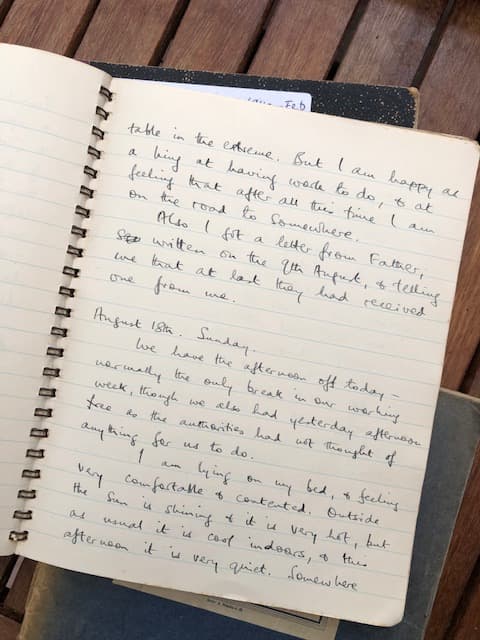 Feb
table in the extreme. But I am happy as
a king at having work to do, & at
feeling that after all this time I am
on the road to somewhere.
Also I got a letter from Father,
written on the 9th August, & telling
me that at last they had received
one from me.
August 18th. Sunday.
We have the afternoon off today –
normally the only break in our working
week, though we also had yesterday afternoon
free as the authorities had not thought of
anything for us to do.
I am lying on my bed, & feeling
very comfortable & contented. Outside
the sun is shining & it is very hot, but
as usual it is cool indoors, & this
afternoon it is very quiet. Somewhere